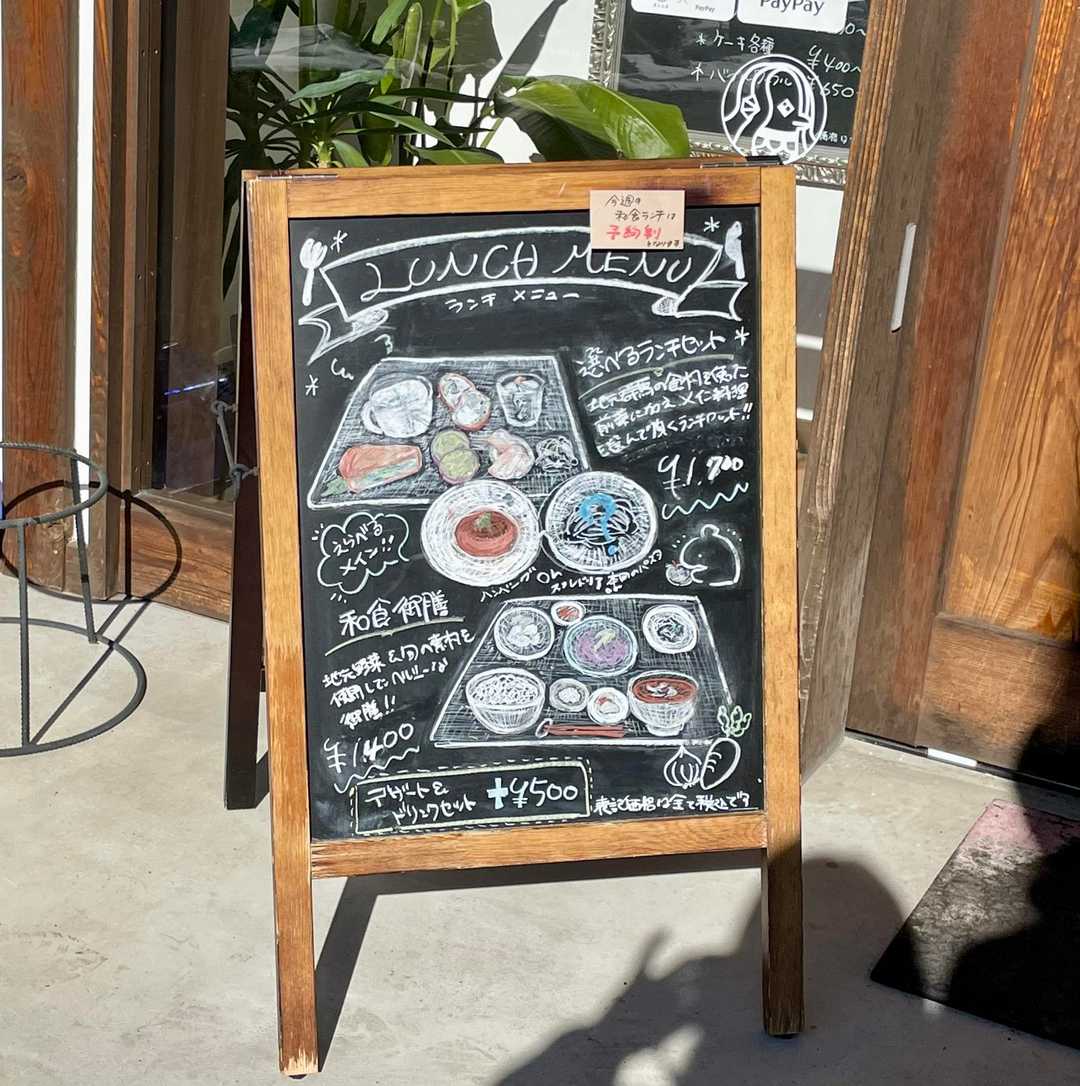 PayPay
PayPay
*ケーキ各種
¥400~
¥650
今週の
和食ランチは
予約制
となります
LUNCH MENU
ランチ メニュー
選べるランチセット
地元群馬の食材を使った
前菜に加えメイン料理
選んで頂くランチセット!!
¥1,700
えらべる
メイン!!
ハンバーグ or
本日のパスタ
和食御膳
地元野菜&旬の素材を
使用したヘルシーな
御膳!!
¥1,400
デザート&
ドリンクセット +¥500
表記価格は全て税込です